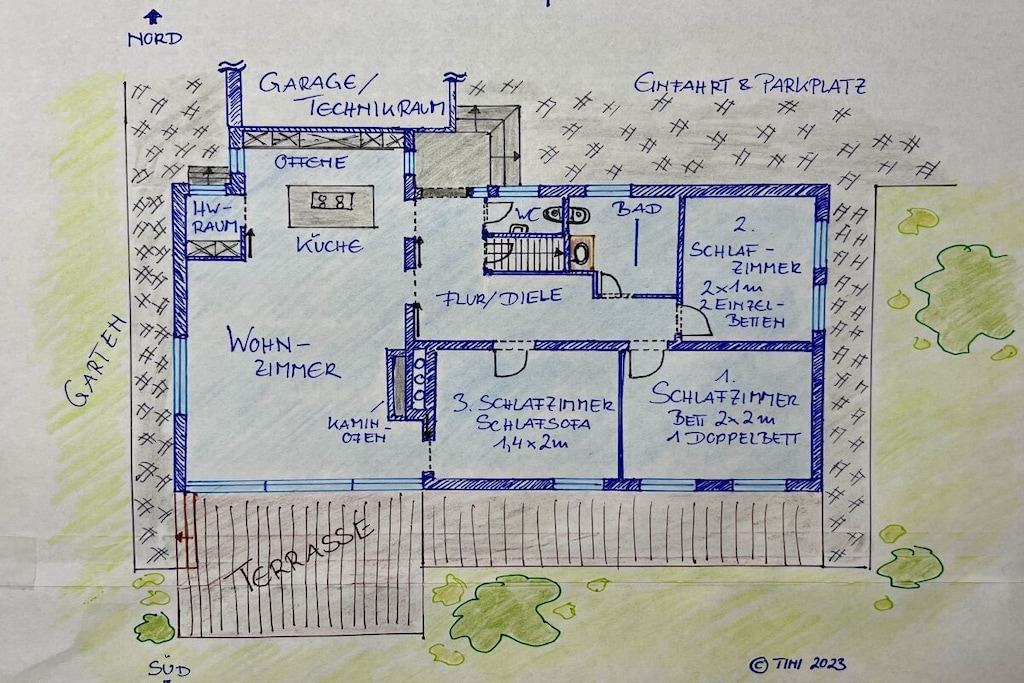 NORD
GARAGE/
TECHNIKRAUM
EINFAHRT & PARKPLATZ
OFFENE
KÜCHE
HW-
RAUM
WC
BAD
2.
SCHLAF-
ZIMMER
2x1m
2 EINZEL-
BETTEN
FLUR/DIELE
GARTEN
WOHN-
ZIMMER
KAMIN-
OFEN
3. SCHLAFZIMMER
SCHLAFSOFA
1,4x2m
1.
SCHLAFZIMMER
BETT 2x2m
1 DOPPELBETT
TERRASSE
SÜD
© TINI 2023